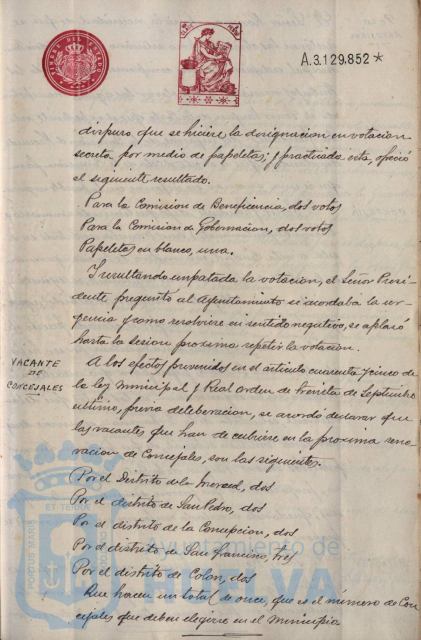 A.3.129.852*
dispuso que se hiciere la designacion en votacion
secreta por medio de papeletas; y practicada esta, ofreció
el siguiente resultado.
Para la Comision de Beneficencia, dos votos
Para la Comision de Gobernacion, dos votos
Papeletas en blanco, una.
Y resultando empatada la votacion, el Señor Presi-
dente preguntó al Ayuntamiento si acordaba la ur-
gencia y como resolviese en sentido negativo, se aplazó
hasta la sesion proxima repetir la votacion.
VACANTE
DE
CONCEJALES
A los efectos prevenidos en el artículo cuarenta y cinco de
la ley Municipal y Real Orden de treinta de Septiembre
ultimo, previa deliberacion, se acordó declarar que
las vacantes que han de cubrirse en la proxima reno-
vacion de Concejales, son las siguientes.
Por el Distrito de la Merced, dos
Por el distrito de San Pedro, dos
Por el distrito de la Concepcion, dos
Por el distrito de San Francisco, tres
Por el distrito de Colon, dos
Que hacen un total de once, que es el número de Con-
cejales que deben elegirse en el Municipio.
PORTUS MARIS
ET TERRAE
Ayuntamiento de
HUELVA